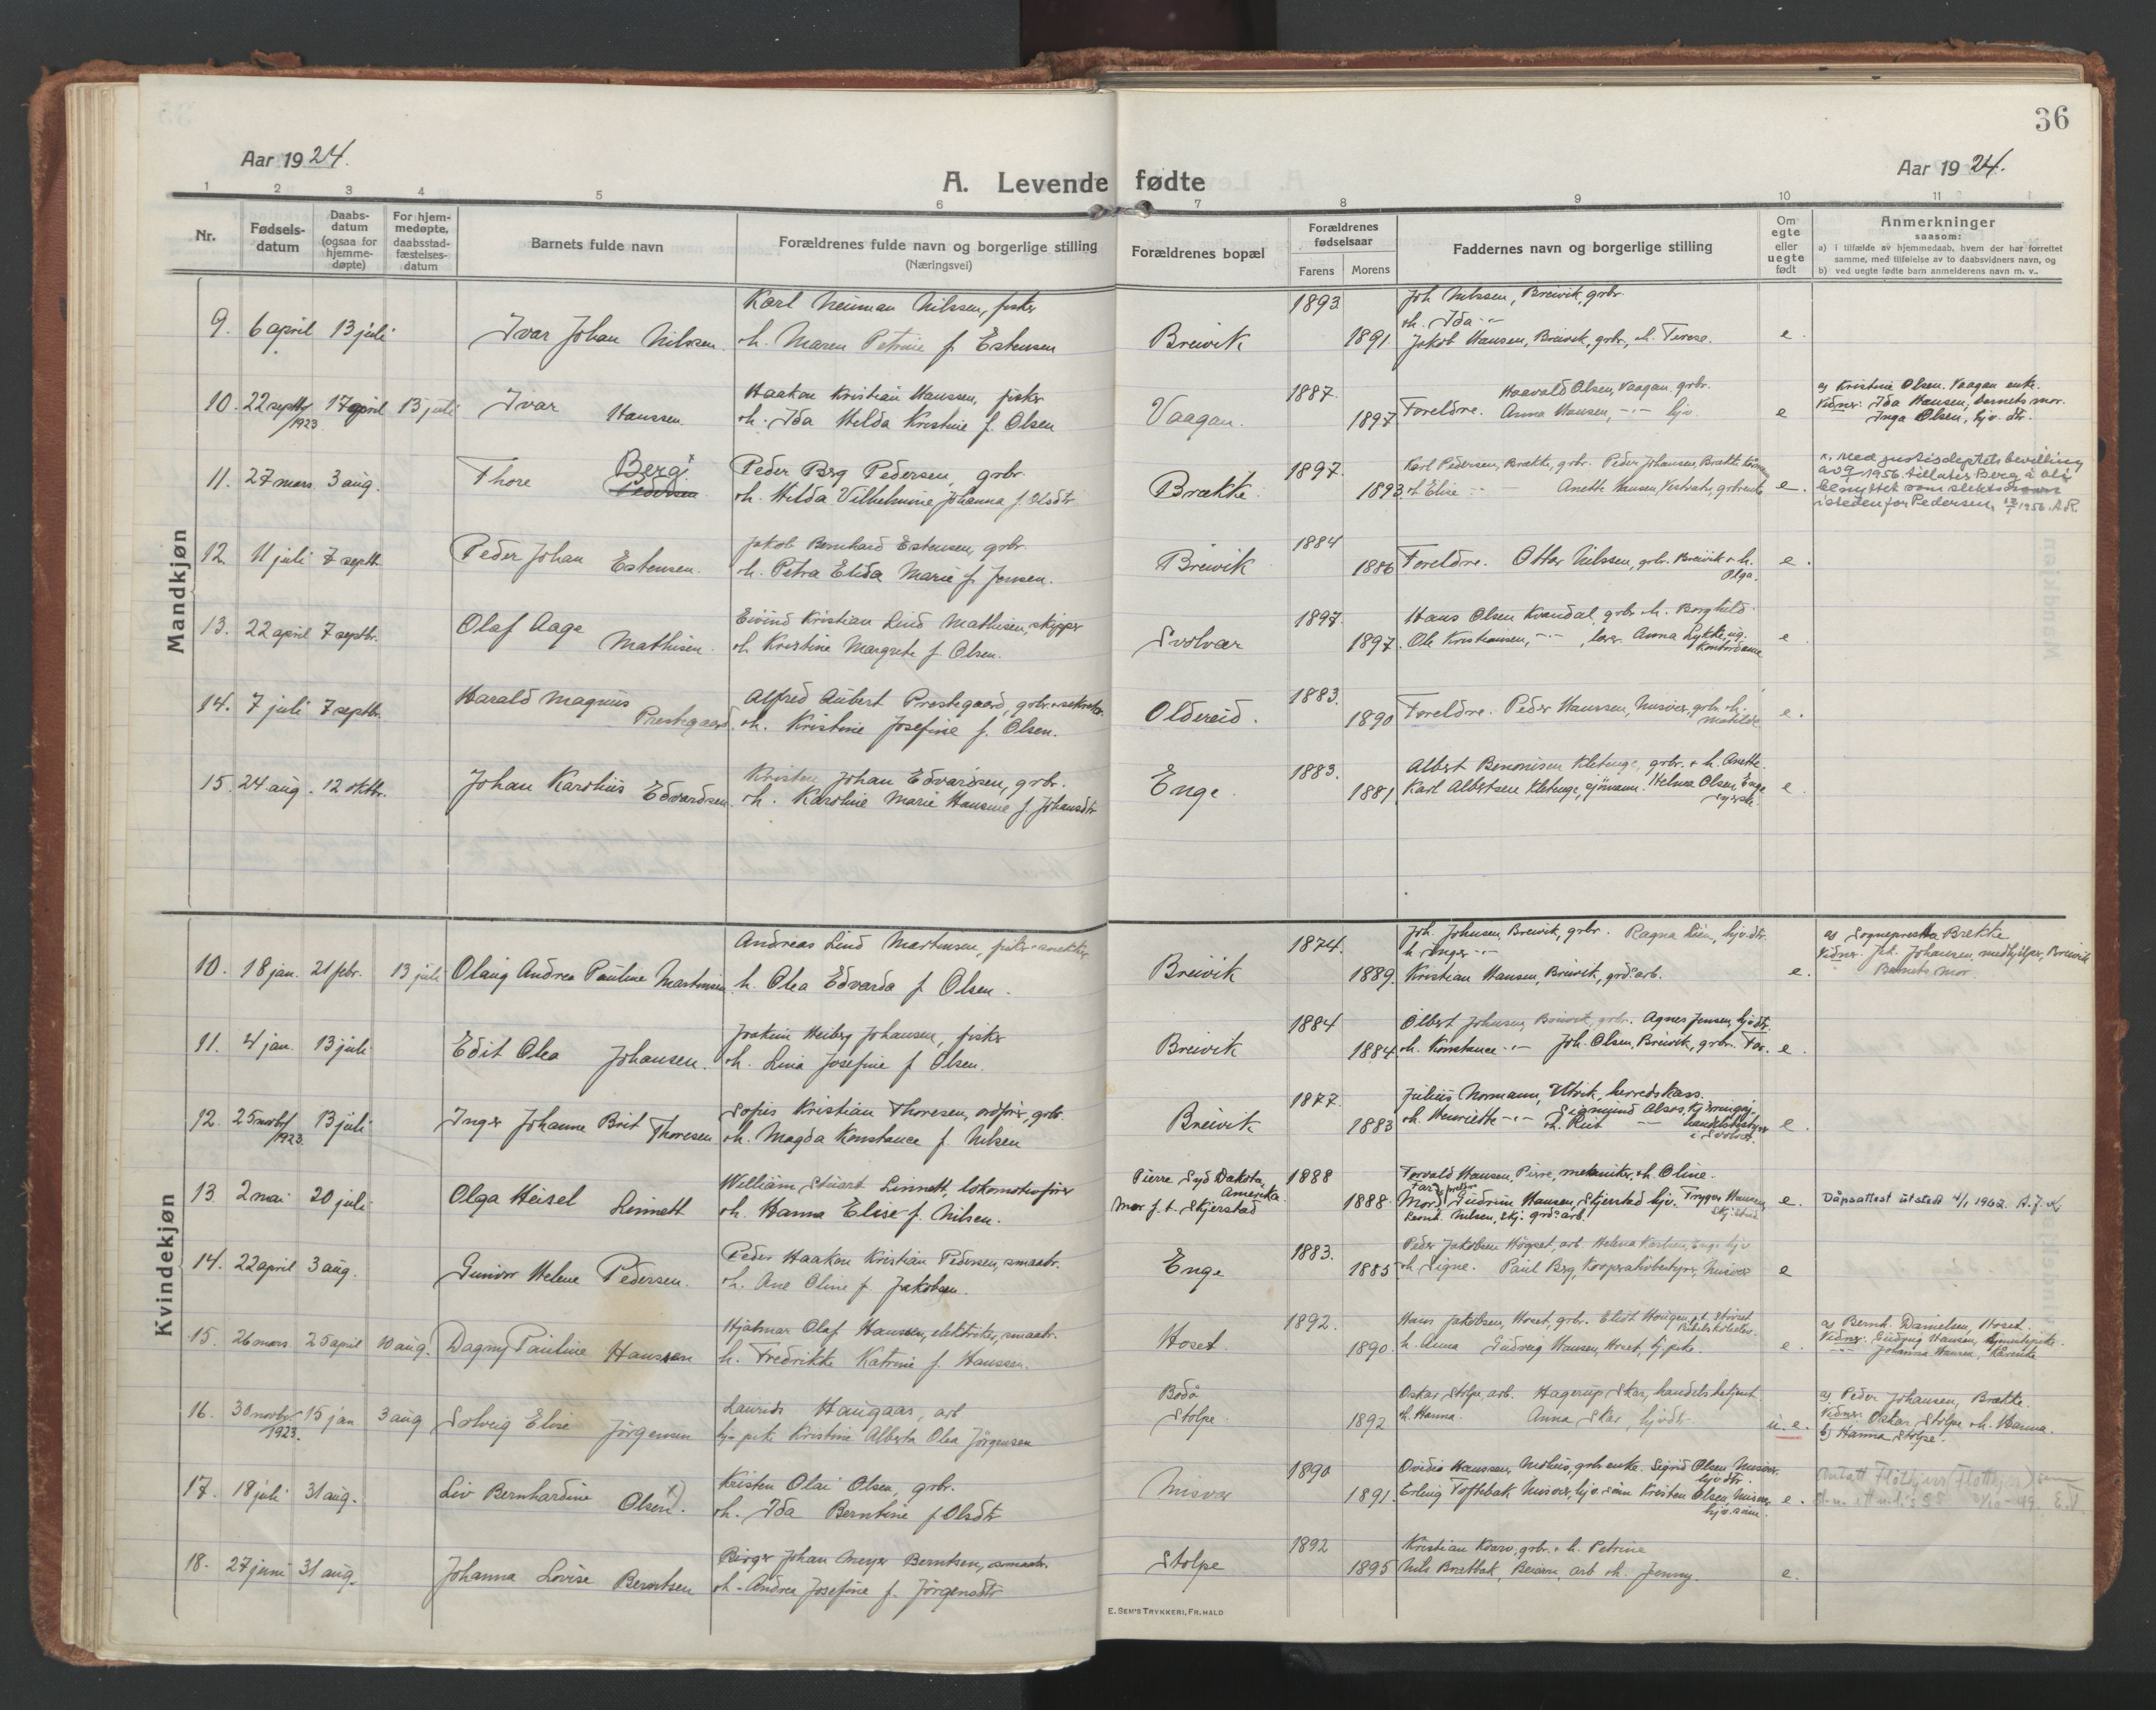 36
Aar 1924.
Aar 1924.
A. Levende fødte
1 2 3 4 5 6 7 8 9 10 11
Nr.
Fødsels-
datum
Daabs-
datum
(ogsaa for
hjemme-
døpte)
For hjem-
medøpte,
daabsstad-
fæstelses-
datum
Barnets fulde navn
Forældrenes fulde navn og borgerlige stilling
(Næringsvei)
Forældrenes bopæl
Forældrenes
fødselsaar
Farens
Morens
Faddernes navn og borgerlige stilling
Om
egte
eller
uegte
født
Anmerkninger
saasom:
a) i tilfælde av hjemmedaab, hvem der har forrettet
samme, med tilføielse av to daabsvidners navn, og
b) ved uegte fødte barn anmelderens navn m. v.
Mandkjøn
9. 6 april 13 juli
Ivar Johan Nilssen
Karl Neuman Nilssen, fisker
h. Maren Petrine f. Estensen
Breivik
1893
1891
Joh. Nilssen, Breivik, grbr.
h. Ida -"-
Jakob Hansen, Breivik, grbr., h. Terese.
e.
10. 22 septbr/1923 17 april 13 juli
Ivar Hanssen
Haakon Kristian Hanssen, fisker
h. Ida Hilda Kristine f. Olsen
Vaagan.
1887.
1897
Haavald Olsen, Vaagan. grbr.
Foreldre. Anna Hansen, -"- hjv.
e
a) Kristine Olsen. Vaagan enke.
Vidner: Ida Hansen, barnets mor.
Inga Olsen, hjv. dtr.
11. 27 mars. 3 aug.
Thore Berg x
Pedersen
Peder Berg Pedersen, grbr.
h. Hilda Vilhelmine Johanna f. Olsdtr
Brække
1897.
1893
Karl Pedersen, Brække, grbr. Peder Johansen, Brække
h. Elise -"- Anette Hansen,
e.
x. Med justisdeptets bevilling
av 9/1 1956. tillates Berg å bli
benyttet som slektsnavn
istedenfor Pedersen. 1956. A.R.
12. 11 juli 7 septb.
Peder Johan Estensen.
Jakob Bernhard Estensen, grbr.
h. Petra Elida Marie f. Jensen.
Breivik
1884
1886
Foreldre. Ottar Nilssen, grbr. Breivik + h.
Olga.
e.
13. 22 april 7 septbr.
Olaf Aage Mathisen.
Eivind Kristian Lind Mathisen, skipper
h. Kristine Margrete f. Olsen.
Svolvær
1897.
1897.
Hans Olsen Kvandal, grbr. h. Borghild.
Ole Kristiansen, -"- , Anna Lykke, ug.
Kontordame
e
14. 7 juli 7 septbr.
Harald Magnus Prestegaard.
Alfred Aubert Prestegaard, grbr.
h. Kristine Josefine f. Olsen.
Oldereid.
1883.
1890
Foreldre. Peder Hanssen, Misvær, grbr. h.
Matilde
e.
15. 24 aug. 12 oktbr.
Johan Karolius Edvardsen.
Kristen Johan Edvardsen, grbr.
h. Karoline Marie Hansine f. Johansdtr
Enge.
1883.
1881
Albert Benonisen Kletenge, grbr. + h. Anette.
Karl Albertsen Kletenge, sjömann. Helma Olsen, Enge
e.
Kvindekjøn
10. 18 jan. 21 febr. 13 juli
Olaug Andrea Pauline Martinsen
Andreas Lind Martinsen, fisker
h. Olea Edvarda f. Olsen.
Breivik
1874.
1889.
Joh. Johnsen, Breivik, grbr. Ragna Lien, hjv. dtr.
h. Inger -"-
Kristian Hansen, Breivik, grd. arb.
e.
a) Sogneprest Brekke
Vidner: Johansen, medhjelper, Breivik
Barnets mor.
11. 4 jan. 13 juli
Edit Olea Johansen.
Joakim Heiberg Johansen, fisker
h. Lina Josefine f. Olsen.
Breivik
1884
1884
Albert Johnsen, Breivik, grbr. Agnes Jensen, hjv. dtr.
h. Konstance -"- Joh. Olsen, Breivik, grbr. Far.
e.
12. 25 novbr/1923. 13 juli
Inger Johanne Brit Thoresen
Sofus Kristian Thoresen, ordfører, grbr.
h. Magda Konstance f. Nilsen
Breivik
1877.
1883
Julius Normann, Utvik, herredskass.
h. Henriette -"- Sigmund Alsos,
h. Rut -"-
i Svolvær
e.
13. 2 mai 20 juli
Olga Heisel Linnett
William Stuart Linnett, lokomotivfører
h. Hanna Elise f. Nilsen.
Pierre Syd Dakota,
Amerika.
Mor f. t. Skjerstad
1888
1888
Torvald Hansen, Pierre, mekaniker, + h. Oline.
Mor, Gudrun Hansen, Skjerstad hjv. Trygve Hansen,
Bernt. Nilsen, Skj. grd. arb.
e.
Dåpsattest utstedt 4/1 1962. A.J.L.
14. 22 april 3 aug.
Gunvor Helene Pedersen.
Peder Haakon Kristian Pedersen, smaabr.
h. Ane Oline f. Jakobsen.
Enge
1883.
1885
Peder Jakobsen Högset, arb. Helena Karlsen, Enge hjv
h. Signe. Paul Berg, Kooperativbestyrer, Misvær
e
15. 26 mars. 25 april 10 aug.
Dagny Pauline Hanssen
Hjalmar Olaf Hanssen, elektriker, smaabr.
h. Fredrikke Katrine f. Hanssen.
Hoset.
1892.
1890.
Hans Jakobsen, Hoset, grbr. Eliot Haugen
h. Anna Gudveig Hansen, Hoset, hj. pike.
e.
a) Bernh. Danielsen, Hoset.
Vidner: Gudveig Hansen,
-"- Johanna Hansen,
16. 30 novbr/1923. 15 jan 3 aug
Solveig Elise Jörgensen
Laurids Haugaas, arb.
hj. pike Kristine Alberta Olea Jörgensen
Bodö
Stolpe.
1892
Oskar Stolpe, arb. Hagerup Skar, handelsbetjent
h. Hanna. Anna Skar, hjv. dtr.
u. e.
a) Peder Johansen, Brække.
Vidner: Oskar Stolpe + h. Hanna.
b) Hanna Stolpe.
17. 18 juli 31 aug.
Liv Bernhardine Olsen. x)
Kristen Olai Olsen, grbr.
h. Ida Berntine f. Olsdtr
Misvær
1890
1891.
Ovidia Hanssen, grbr. enke. Sigrid Olsen Misvær.
hjv. dtr.
Erling Toftebak Misvær, hjv. sön Kristen Olsen, Misvær
hjv. sön.
e.
18. 27 juni 31 aug.
Johanna Lovise Berntsen
Birger Johan Meyer Berntsen, smaabr.
h. Andrea Josefine f. Jörgensdtr
Stolpe
1892
1895
Kristian Kvarv, grbr. + h. Petrine
Nils Bratbak, Beiarn, arb. h. Jenny.
e.
E. Sem's Trykkeri, Fr.hald